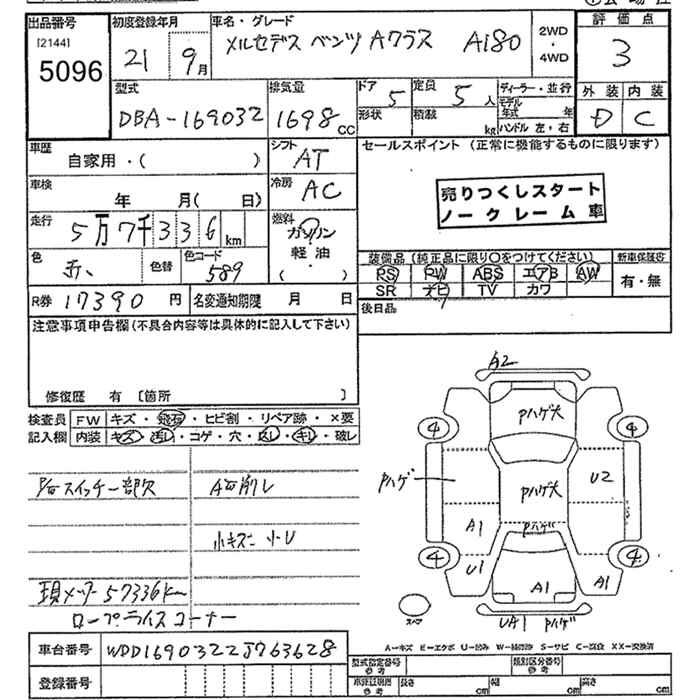 出品番号 初度登録年月 車名・グレード 評価点
[2144] 2WD
5096 21 9月 メルセデス ベンツ Aクラス A180 ・ 3
4WD
型式 排気量 ドア 定員 ディーラー・並行 外装 内装
DBA-169032 1698CC 5 5人 モデル年式 年 D C
形状 積載 kg ハンドル 左・右
車歴 シフト セールスポイント (正常に機能するものに限ります)
自家用・( ) AT
車検 冷房
年 月( 日) AC 売りつくしスタート
走行 燃料 ノークレーム車
5万7千336km ガソリン
色 色替 色コード 軽油 装備品(純正品に限り〇をつけてください) 新車保証書
赤 589 ・( ) PS PW ABS エアB AW 有・無
SR ナビ TV カワ
R券 17390円 名変通知期限 月 日 後日品
注意事項申告欄(不具合内容等は具体的に記入して下さい)
A2
修復歴 有 [箇所 ]
Pハゲ大
検査員 FW キズ・飛石・ヒビ割・リペア跡・×要
記入欄 内装 キズ・汚レ・コゲ・穴・ ・ ・破レ
4 4
Pハゲ U2
Pハゲ大
P/Gスイッチ一部欠 A右削レ
A1 Pハゲ
小キズ 小U
4 4
U1 A1
現メーター57336km A1
ロープライスコーナー
スペア UA1 Pハゲ
A-キズ E-エクボ U-凹み W-補修跡 S-サビ C-腐食 XX-交換済
車台番号 WDD1690322J763628 型式指定番号 参考 類別区分番号 参考
登録番号 車検証期間 参考 長さ cm 幅 cm 高さ cm